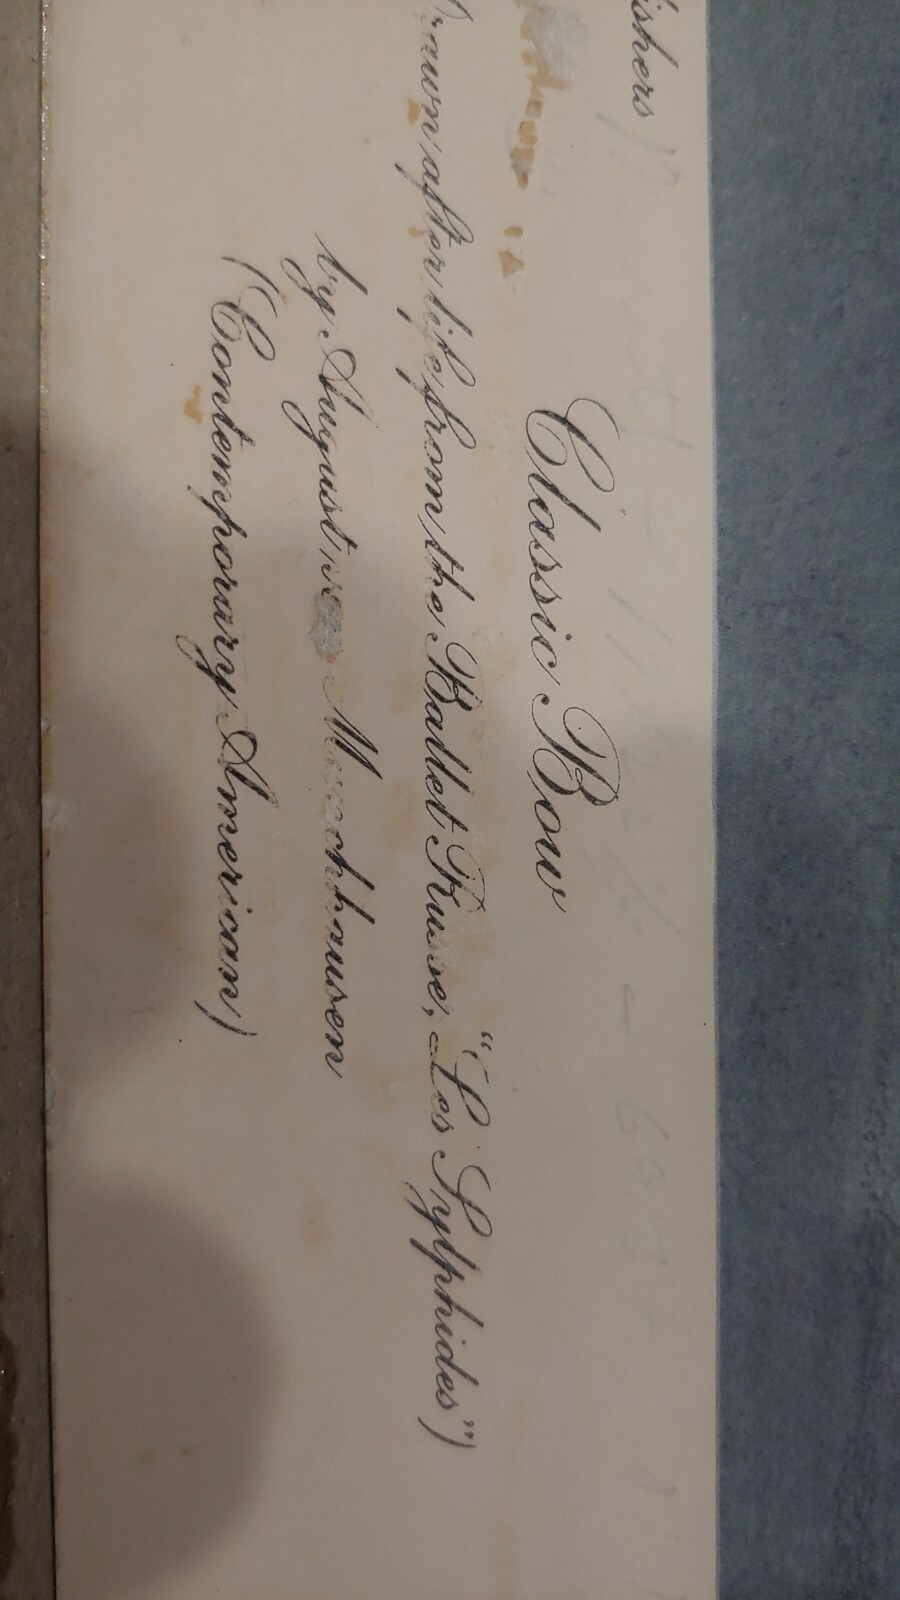 ishers
Classic Bow
Drawn after life, from the Ballet Russe, "Les Sylphides")
by August Muenchhausen
(Contemporary American)